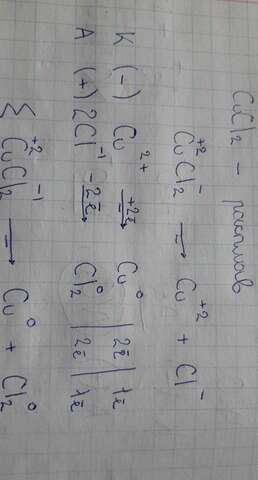 CuCl₂ – расплав
Cu⁺²Cl₂⁻ → Cu⁺² + Cl⁻
K (−) Cu²⁺ +2ē → Cu⁰ | 2ē | 1ē
A (+) 2Cl⁻¹ −2ē → Cl₂⁰ | 2ē | 1ē
Σ Cu⁺²Cl₂⁻¹ → Cu⁰ + Cl₂⁰